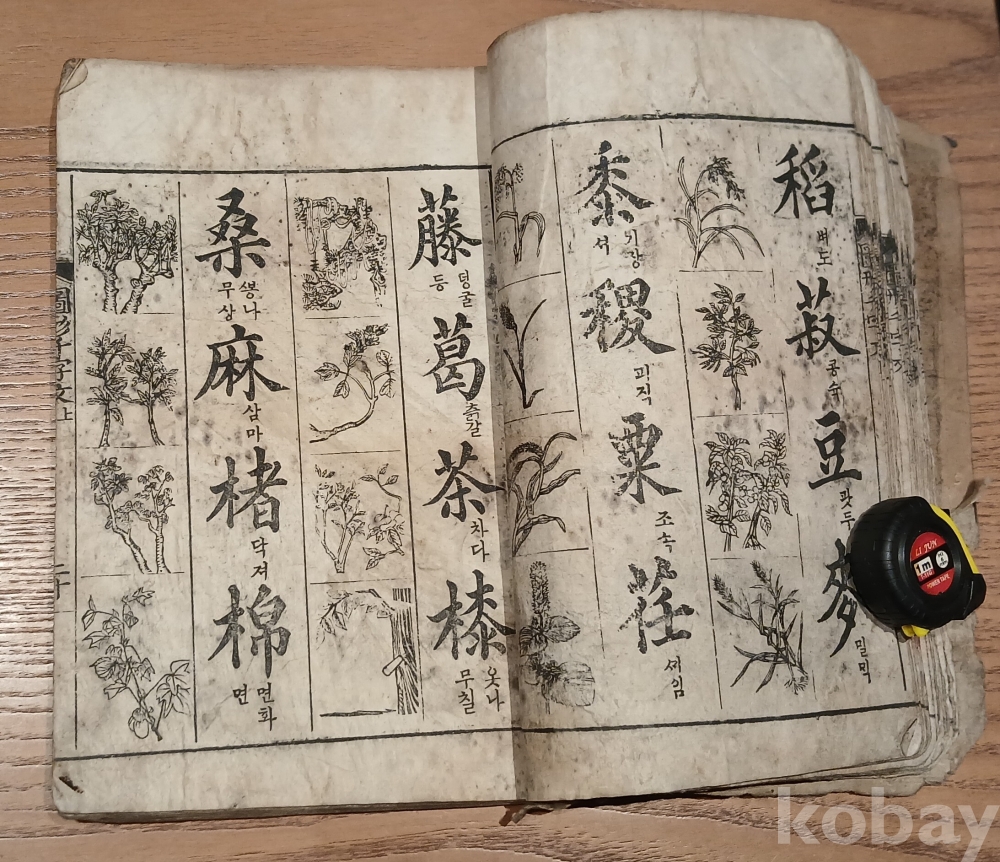 稻
벼도
菽
콩슉
豆
팟두
麥
밀믹
黍
기장
서
稷
피직
粟
조속
荏
셰임
藤
덩굴
등
葛
츩갈
茶
차다
榛
옷나
무칠
桑
뽕나
무상
麻
삼마
楮
닥져
棉
면화
면
圖形千字文上
二十
LI JUN
1m
POWER TAPE
kobay